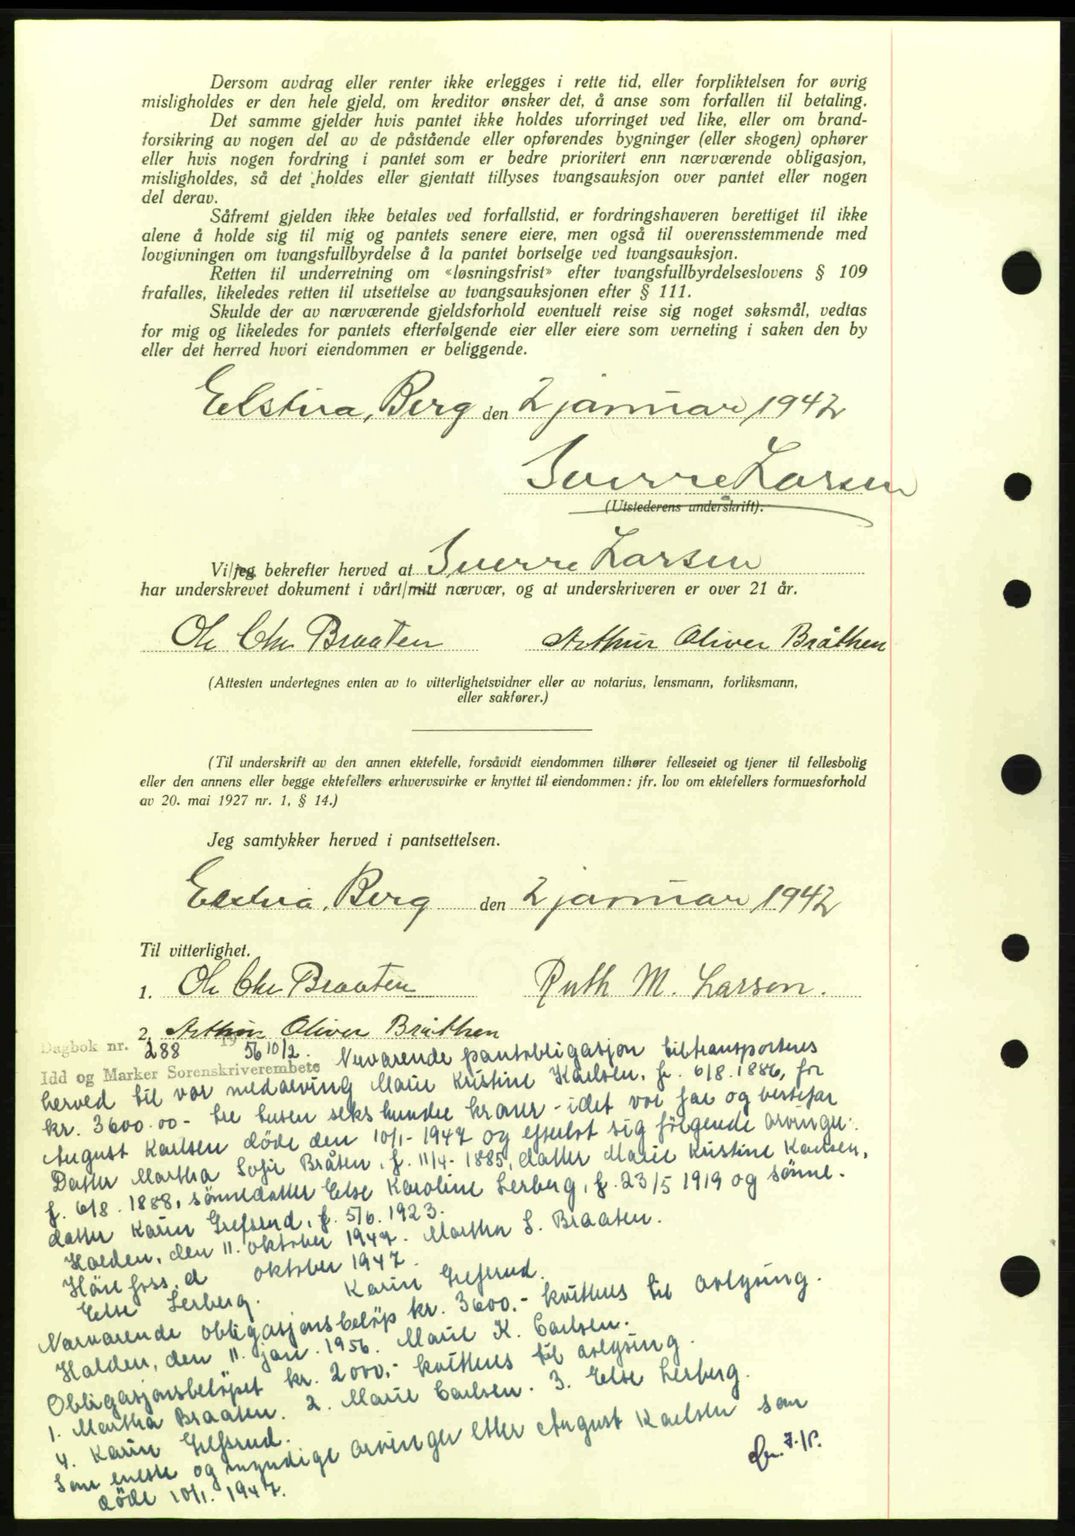 Dersom avdrag eller renter ikke erlegges i rette tid, eller forpliktelsen for øvrig
misligholdes er den hele gjeld, om kreditor ønsker det, å anse som forfallen til betaling.
Det samme gjelder hvis pantet ikke holdes uforringet ved like, eller om brand-
forsikring av nogen del av de påstående eller opførendes bygninger (eller skogen) ophører
eller hvis nogen fordring i pantet som er bedre prioritert enn nærværende obligasjon,
misligholdes, så det holdes eller gjentatt tillyses tvangsauksjon over pantet eller nogen
del derav.
Såfremt gjelden ikke betales ved forfallstid, er fordringshaveren berettiget til ikke
alene å holde sig til mig og pantets senere eiere, men også til overensstemmende med
lovgivningen om tvangsfullbyrdelse å la pantet bortselge ved tvangsauksjon.
Retten til underretning om «løsningsfrist» efter tvangsfullbyrdelseslovens § 109
frafalles, likeledes retten til utsettelse av tvangsauksjonen efter § 111.
Skulde der av nærværende gjeldsforhold eventuelt reise sig noget søksmål, vedtas
for mig og likeledes for pantets efterfølgende eier eller eiere som verneting i saken den by
eller det herred hvori eiendommen er beliggende.
Berg den 2 januar 1942
Sverre Larsen
(Utstederens underskrift).
Vi/jeg bekrefter herved at Sverre Larsen
har underskrevet dokument i vårt/mitt nærvær, og at underskriveren er over 21 år.
Ole Chr Braaten Arthur Oliver Bråthen
(Attesten undertegnes enten av to vitterlighetsvidner eller av notarius, lensmann, forliksmann,
eller sakfører.)
(Til underskrift av den annen ektefelle, forsåvidt eiendommen tilhører felleseiet og tjener til fellesbolig
eller den annens eller begge ektefellers erhvervsvirke er knyttet til eiendommen: jfr. lov om ektefellers formuesforhold
av 20. mai 1927 nr. 1, § 14.)
Jeg samtykker herved i pantsettelsen.
Berg den 2 januar 1942
Til vitterlighet.
1. Ole Chr Braaten Ruth M. Larsen.
2. Arthur Oliver Bråthen
Dagbok nr. 288 19 56 10/2. Nærværende pantobligasjon tiltransporteres
Idd og Marker Sorenskriverembete
herved til vår medarving Marie Kristine Karlsen, f. 6/8. 1886, for
kr. 3600.00 - tre tusen seks hundre kroner - idet vor far og bestefar
August Karlsen døde den 10/1 - 1947 og efterlot sig følgende arvinger:
Datter Martha Sofie Bråten, f. 11/4 - 1885, datter Marie Kristine Karlsen,
f. 6/8. 1888, sønnedatter Else Karoline Lerberg, f. 23/5 1919 og sønne-
datter Karin Grefsrud, f. 5/6. 1923.
Halden, den 11. oktober 1947. Martha S. Braaten.
Hønefoss, d oktober 1947.
Else Lerberg. Karin Grefsrud.
Nærværende obligasjonsbeløp kr. 3600.- kvitteres til avlysning.
Halden, den 11. jan. 1956. Marie K. Carlsen.
Obligasjonsbeløpet kr. 2000,- kvitteres til avlysning.
1. Martha Braaten. 2. Marie Carlsen. 3. Else Lerberg.
4. Karin Grefsrud.
Som eneste og myndige arvinger etter August Karlsen som
døde 10/1. 1947.